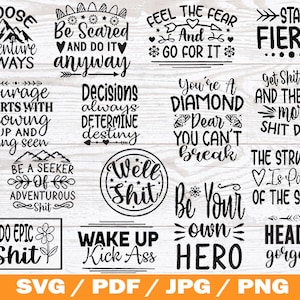 OOSE
enture
WAYS
Be Scared
AND DO IT
anyway
FEEL THE FEAR
And
GO FOR IT
STA
FIER
urage
RTS WITH
owing
UP AND
ng seen
Decisions
always
DETERMINE
destiny
You're A
DIAMOND
Dear
YOU CAN'T
Break
Get Shit
AND THE
mo
SHIT D
BE A SEEKER
OF
ADVENTUROUS
Shit
Well
Shit
Be Your
own
HERO
THE STRU
Is Pa
OF THE S
DO EPIC
Shit
WAKE UP
Kick Ass
HEAD
gorge
SVG / PDF / JPG / PNG